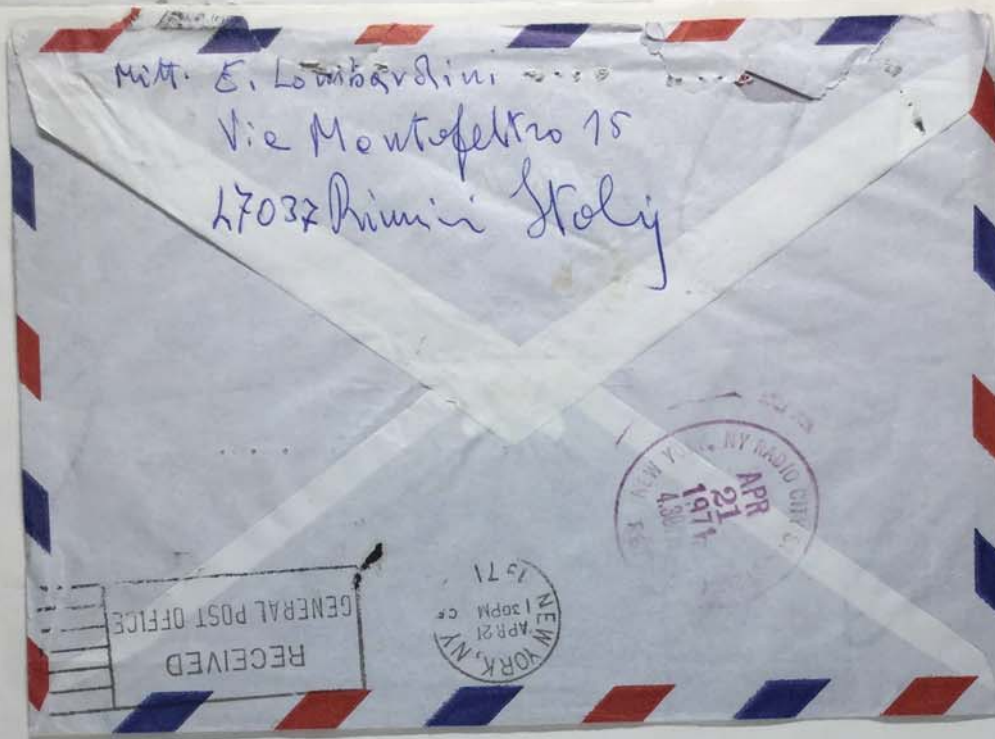 Mitt. E. Lombardini
Via Montefeltro 15
47037 Rimini Italy
NEW YORK, NY RADIO CITY
APR
21
1971
4.30
NEW YORK, NY
APR 21
1 30PM
1971
RECEIVED
GENERAL POST OFFICE